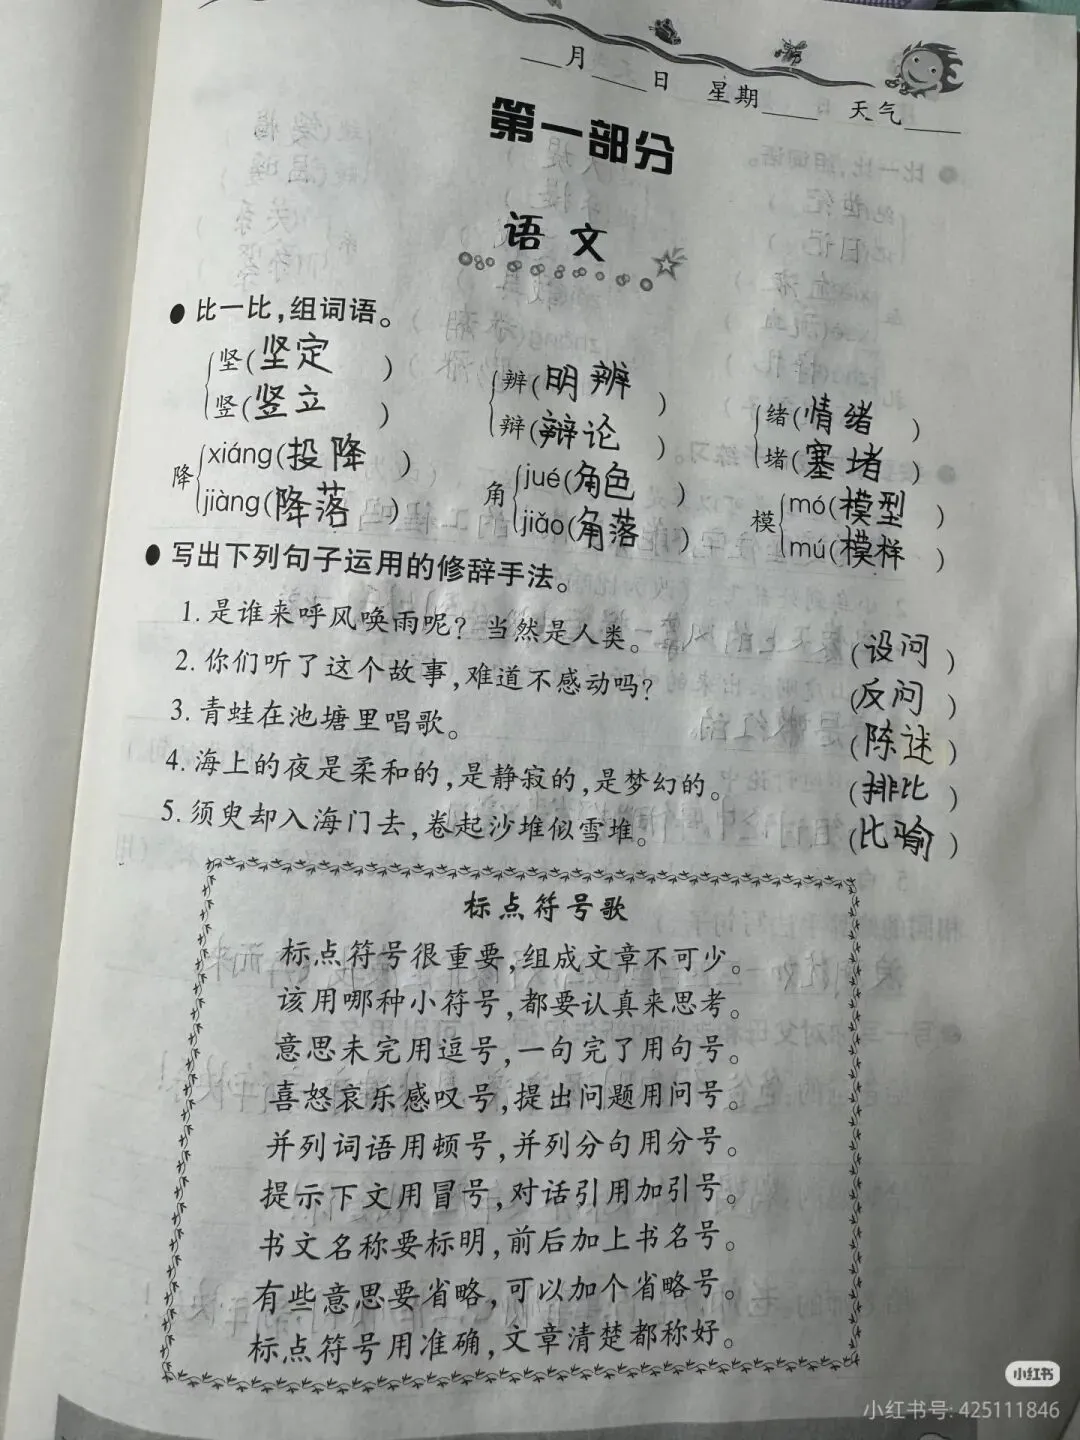 ___月___日 星期___ 天气___
第一部分
语文
●比一比,组词语。
坚(坚定) 辨(明辨) 绪(情绪)
竖(竖立) 辩(辩论) 堵(塞堵)
降 xiáng(投降) 角 jué(角色) 模 mó(模型)
jiàng(降落) jiǎo(角落) mú(模样)
●写出下列句子运用的修辞手法。
1. 是谁来呼风唤雨呢? 当然是人类。 (设问)
2. 你们听了这个故事,难道不感动吗? (反问)
3. 青蛙在池塘里唱歌。 (陈述)
4. 海上的夜是柔和的,是静寂的,是梦幻的。 (排比)
5. 须臾却入海门去,卷起沙堆似雪堆。 (比喻)
标点符号歌
标点符号很重要,组成文章不可少。
该用哪种小符号,都要认真来思考。
意思未完用逗号,一句完了用句号。
喜怒哀乐感叹号,提出问题用问号。
并列词语用顿号,并列分句用分号。
提示下文用冒号,对话引用加引号。
书文名称要标明,前后加上书名号。
有些意思要省略,可以加个省略号。
标点符号用准确,文章清楚都称好。
小红书
小红书号: 425111846